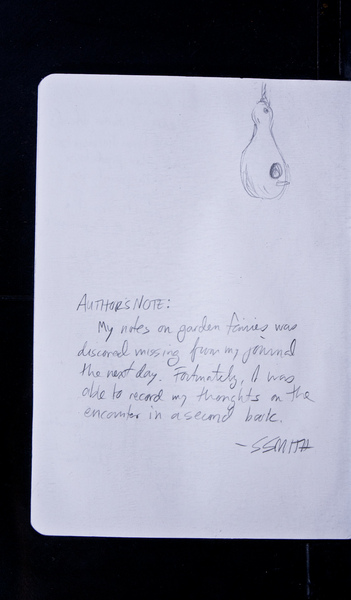 AUTHOR'S NOTE:
My notes on garden fairies was
discored missing from my journal
the next day. Fortunately, I was
able to record my thoughts on the
encounter in a second book.
- SSMITH